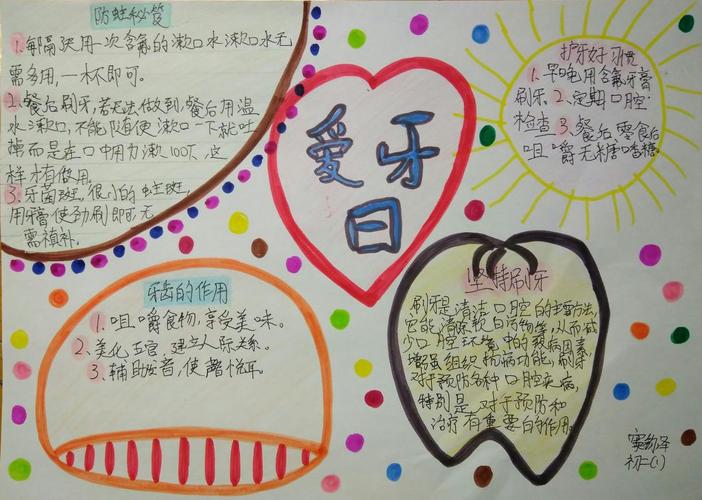 防蛀秘笈
1.每隔2天用一次含氟的漱口水漱口水无
需多用,一杯即可。
2.餐后刷牙,若无法做到,餐后用温
水漱口,不能随便漱口一下就吐
掉而是在口中用力漱100下,这
样才有做用。
3.牙菌斑,很小的蛀斑,
用牙膏使劲刷即可无
需填补。
爱牙
日
护牙好习惯
1.早晚用含氟牙膏
刷牙2、定期口腔
检查3、餐后零食后
咀嚼无糖口香糖。
牙齿的作用
1.咀嚼食物,享受美味。
2.美化五官 建立人际关系。
3、辅助发音,使声悦耳。
坚持刷牙
刷牙是清洁口腔的主要方法,
它能清除软白污物等,从而减
少口腔环境中的致病因素,
增强组织抗病功能,刷牙
对于预防各种口腔疾病,
特别是对于预防和
治疗有重要的作用。
初仁(1)